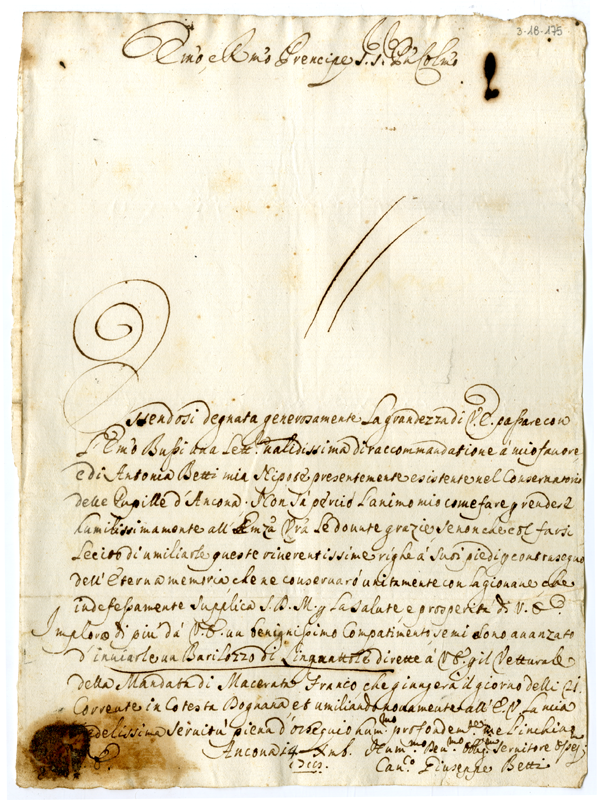 3-18-175
Em̃o, e Rm̃o Prencipe S.S. Prñ Colmo
Essendosi degnata generosamente la grandezza di V.E. passare con
l'Em̃o Bussi una Lett.ª validissima di raccommandatione à mio favore
e di Antonia Betti mia Nipote presentemente esistente nel Conservatorio
delle Pupille d'Ancona. Non sà perciò l'animo mio come fare prendere
humilissimamente all' Em̃za Vrã le dovute grazie, se non che col farsi
lecito di umiliarle queste riverentissime righe à suoi piedi p contrasegno
dell' Eterna memoria che ne conservarò unitamente con la giovane, che
indefessamente supplica S.D.M. p la salute e prosperità di V.E.
Imploro di più dà V.E. un benignissimo Compatimento, se mi sono avanzato
d'inviarle un Barilozzo di Linguattole dirette à V.E. p il Vetturale
della Mandata di Macerata Franco che giungerà il giorno delli 21
Corrente in Cotesta Dognana, et umiliando novamente all' E.V. la mia
fedelissima servitù piena d'ossequio hum.mo profondem.te me l'inchino
Ancona 14 Xmb.
Hum.mo Dev.mo Obb.mo Servitore osseq.
Cau.o Giuseppe Betti